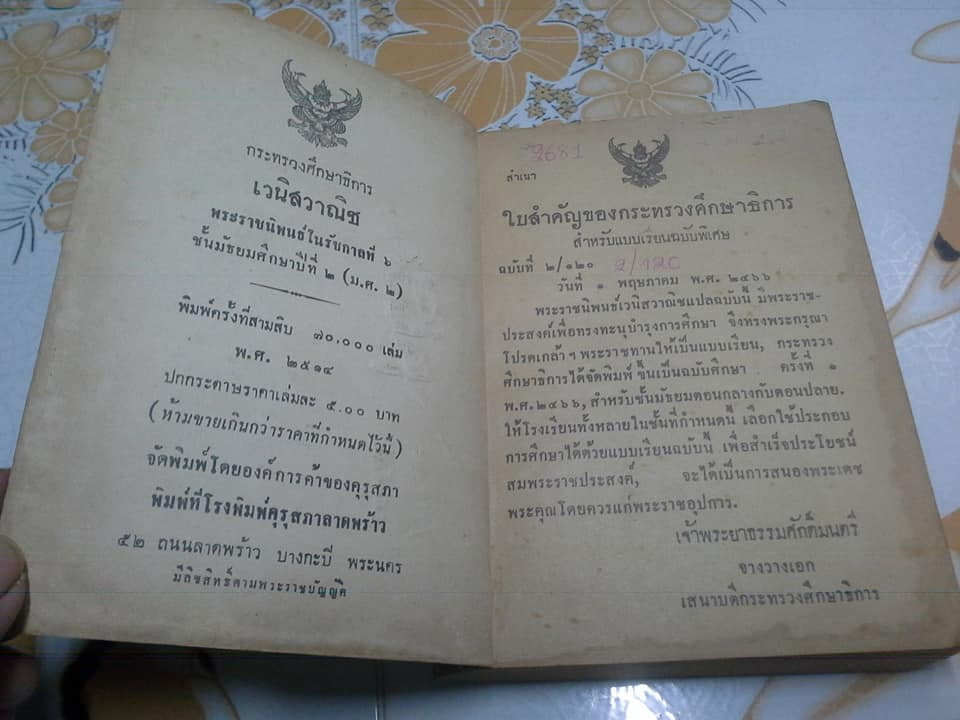 กระทรวงศึกษาธิการ
เวนิสวาณิช
พระราชนิพนธ์ในรัชกาลที่ ๖
ชั้นมัธยมศึกษาปีที่ ๒ (ม.ศ. ๒)
พิมพ์ครั้งที่สามสิบ ๗๐,๐๐๐ เล่ม
พ.ศ. ๒๕๑๔
ปกกระดาษราคาเล่มละ ๕.๐๐ บาท
(ห้ามขายเกินกว่าราคาที่กำหนดไว้นี้)
จัดพิมพ์โดยองค์การค้าของคุรุสภา
พิมพ์ที่โรงพิมพ์คุรุสภาลาดพร้าว
๕๒ ถนนลาดพร้าว บางกะปี พระนคร
มีลิขสิทธิ์ตามพระราชบัญญัติ
2681
สำเนา
ใบสำคัญของกระทรวงศึกษาธิการ
สำหรับแบบเรียนฉบับพิเศษ
ฉบับที่ ๒/๑๒๐ 2/120
วันที่ ๑ พฤษภาคม พ.ศ. ๒๔๖๖
พระราชนิพนธ์เวนิสวาณิชแปลฉบับนี้ มีพระราช-
ประสงค์เพื่อทรงทะนุบำรุงการศึกษา จึงทรงพระกรุณา
โปรดเกล้าฯ พระราชทานให้เป็นแบบเรียน, กระทรวง
ศึกษาธิการได้จัดพิมพ์ ขึ้นเป็นฉบับศึกษา ครั้งที่ ๑
พ.ศ.๒๔๖๖, สำหรับชั้นมัธยมตอนกลางกับตอนปลาย.
ให้โรงเรียนทั้งหลายในชั้นที่กำหนดนี้ เลือกใช้ประกอบ
การศึกษาได้ด้วยแบบเรียนฉบับนี้ เพื่อสำเร็จประโยชน์
สมพระราชประสงค์, จะได้เป็นการสนองพระเดช
พระคุณโดยควรแก่พระราชอุปการ.
เจ้าพระยาธรรมศักดิ์มนตรี
จางวางเอก
เสนาบดีกระทรวงศึกษาธิการ